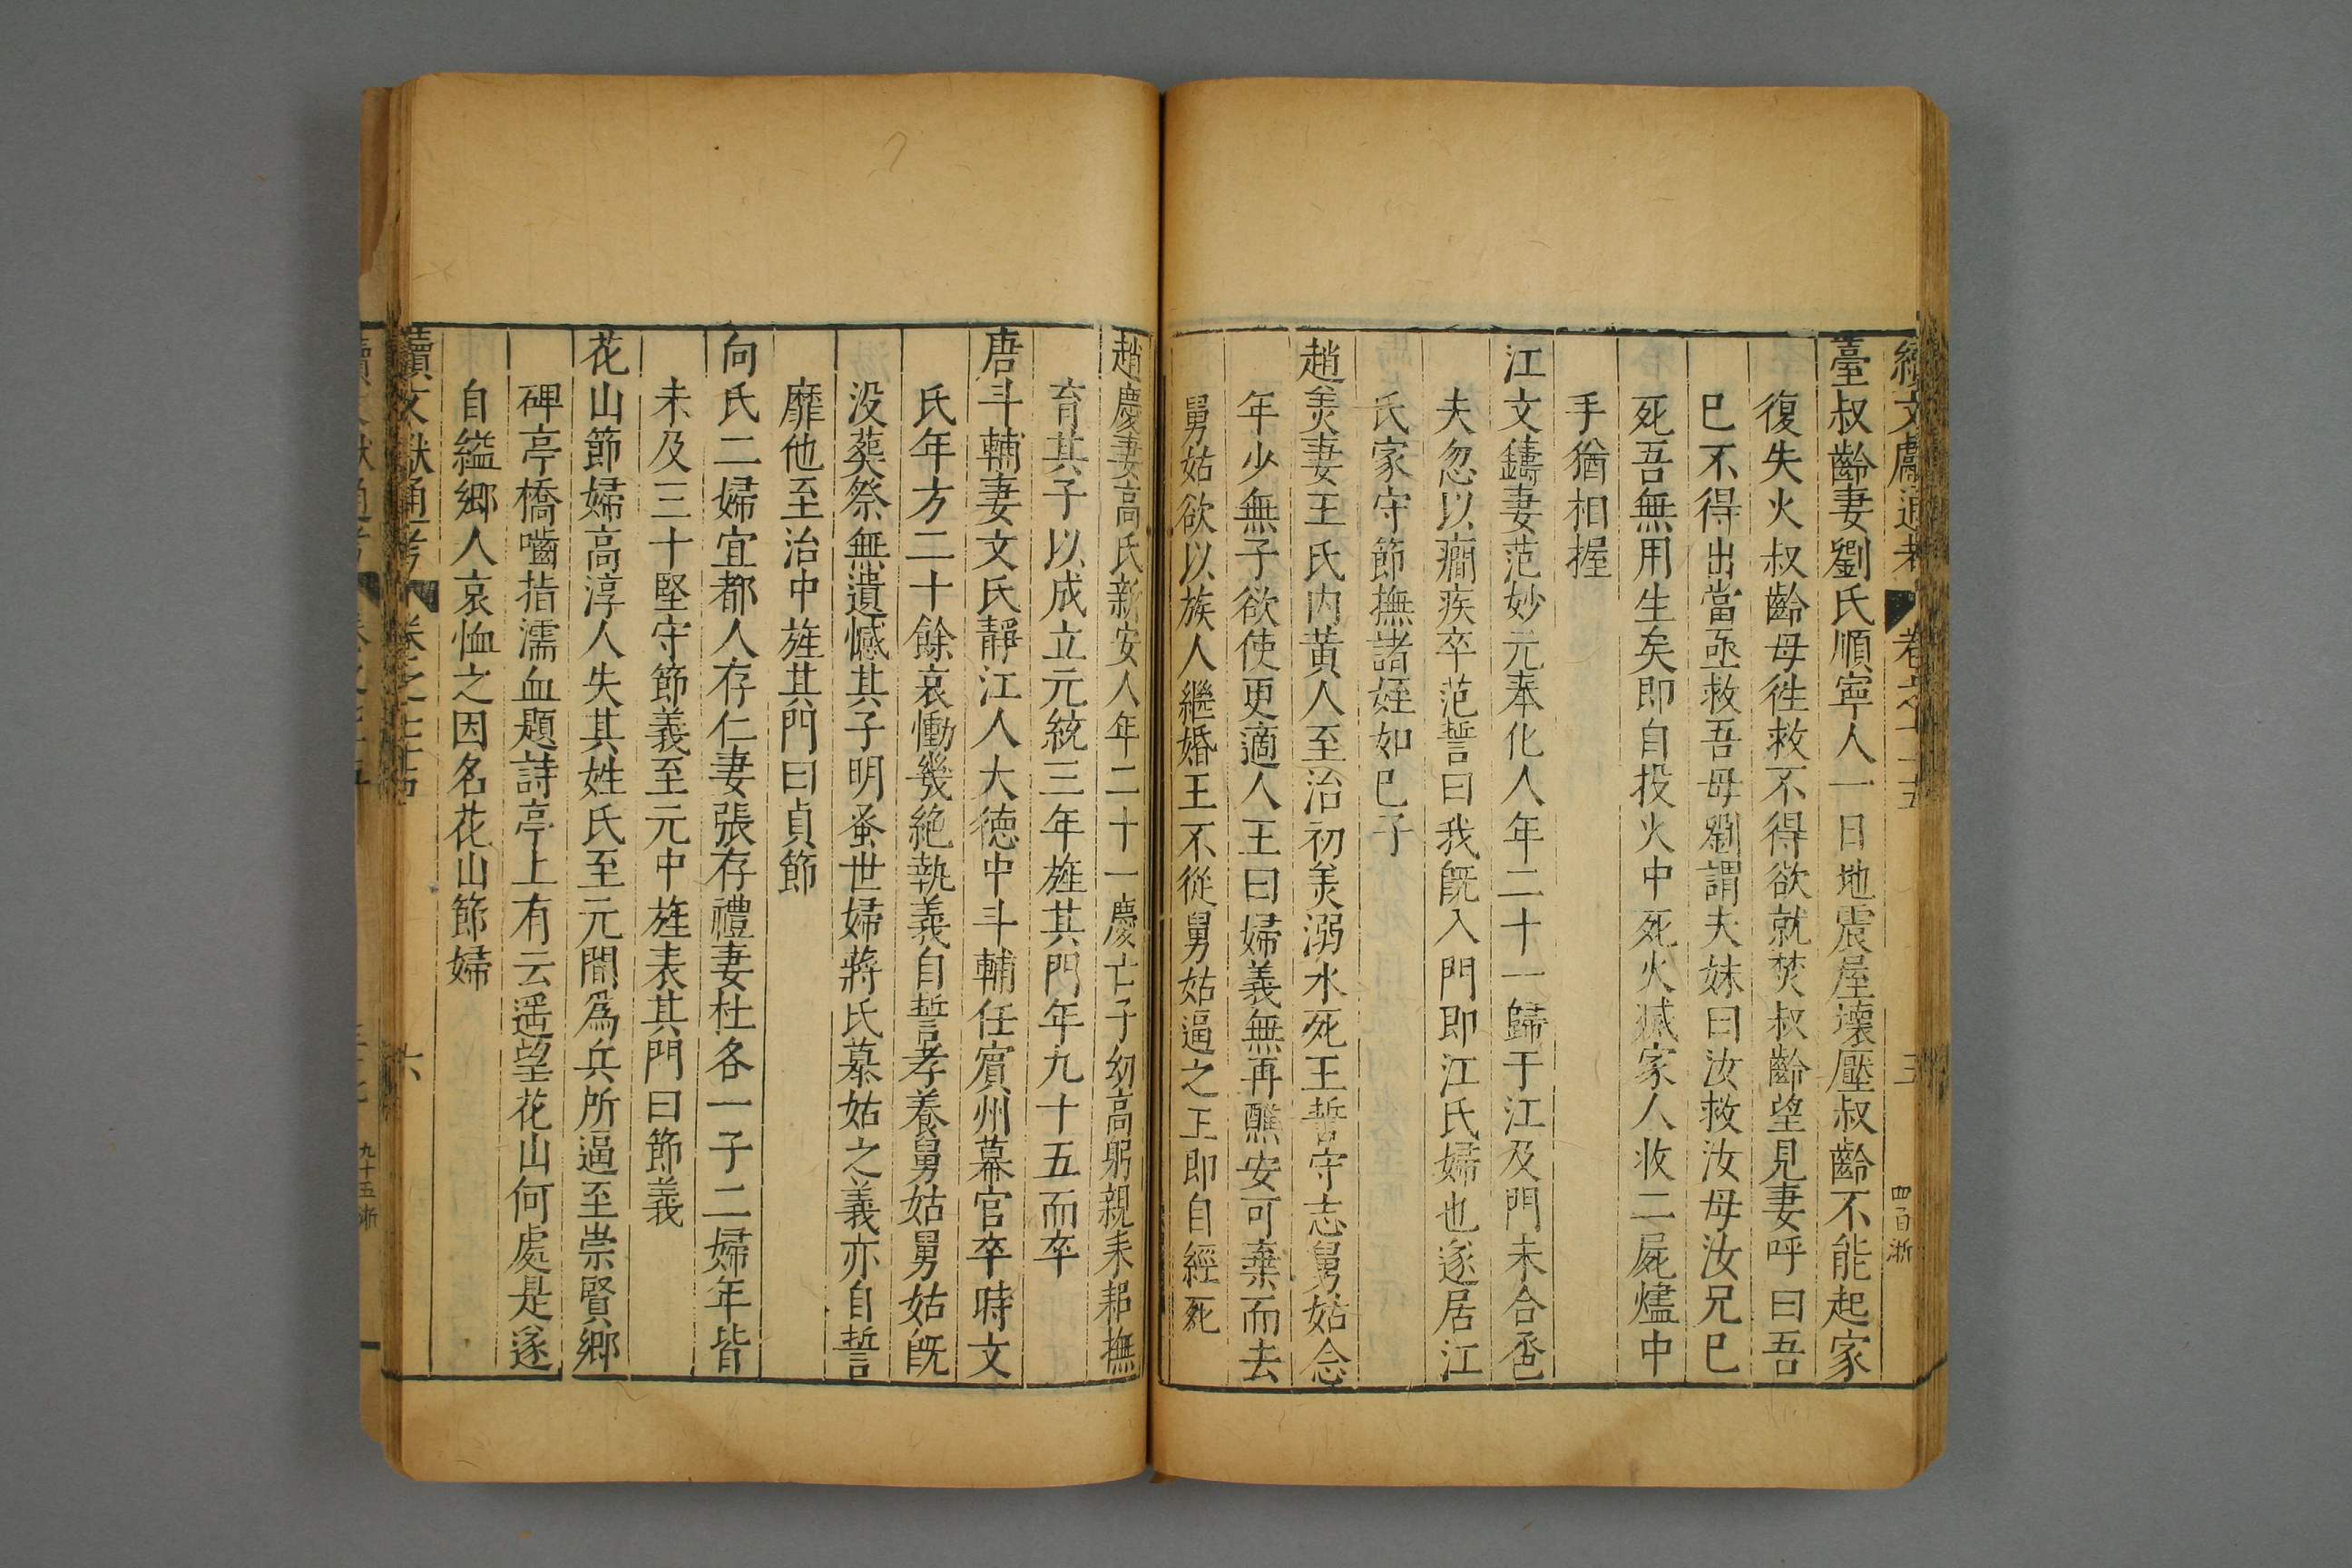 續文獻通考 卷之七十五 三 四百浙
臺叔齡妻劉氏順寧人一日地震屋壞壓叔齡不能起家
復失火叔齡母徃救不得欲就焚叔齡望見妻呼曰吾
已不得出當亟救吾母劉謂夫妹曰汝救汝母汝兄已
死吾無用生矣即自投火中死火滅家人收二屍燼中
手猶相握
江文鑄妻范妙元奉化人年二十一歸于江及門未合卺
夫忽以癇疾卒范誓曰我旣入門即江氏婦也遂居江
氏家守節撫諸姪如已子
趙美妻王氏内黄人至治初美溺水死王誓守志舅姑念
年少無子欲使更適人王曰婦義無再醮安可棄而去
舅姑欲以族人繼婚王不從舅姑逼之王即自經死
趙慶妻高氏新安人年二十一慶亡子幼高躬親耒耜撫
育其子以成立元統三年旌其門年九十五而卒
唐斗輔妻文氏靜江人大德中斗輔任賓州幕官卒時文
氏年方二十餘哀慟幾絶執義自誓孝養舅姑舅姑旣
没葬祭無遺憾其子明蚤世婦蔣氏慕姑之義亦自誓
靡他至治中旌其門曰貞節
向氏二婦宜都人存仁妻張存禮妻杜各一子二婦年皆
未及三十堅守節義至元中旌表其門曰節義
花山節婦高淳人失其姓氏至元間爲兵所逼至崇賢鄉
碑亭橋嚙指濡血題詩亭上有云遥望花山何處是遂
自縊鄉人哀恤之因名花山節婦
續文獻通考 卷之七十五 六
九十五浙